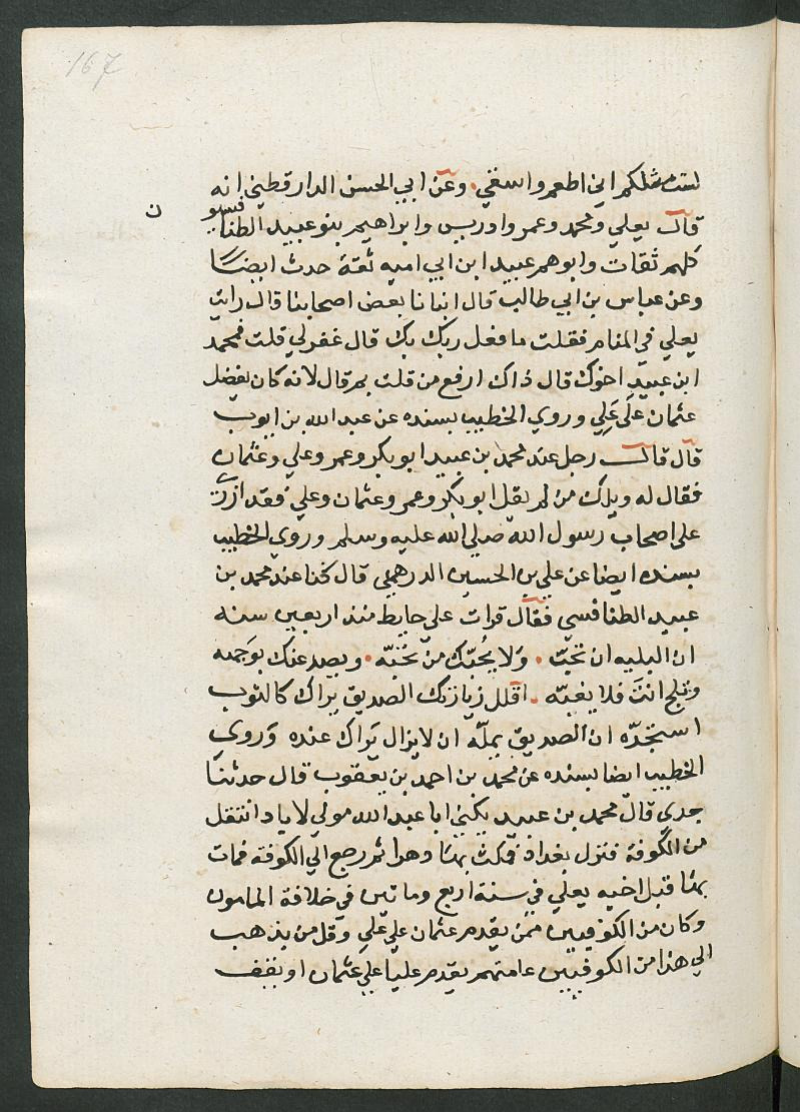 167
لست مثلكم اني اطعم واسقي. وعن ابي الحسن الدارقطني انه
قال يعلي ومحمد وعمر وادريس وابراهيم بنو عبيد الطنافسيو ن
كلهم ثقات وابوهم عبيد ابن ابي اميه ثقة حدث ايضا
وعن عباس بن ابي طالب قال انبانا بعض اصحابنا قال رايت
يعلي في المنام فقلت ما فعل ربك بك قال غفر لي قلت فمحمد
ابن عبيد اخوك قال ذاك ارفع من قلت بم قال لانه كان يفضل
عثمان علَى عَلِي وروي الخطيب بسنده عن عبد الله بن ايوب
قال قال رجل عند محمد بن عبيد ابو بكر وعمر وعلي وعثمان
فقال له ويلك من لم يقل ابو بكر وعمر وعثمان وعلي فقد ازري
على اصحاب رسول الله صلي الله عليه وسلم وروي الخطيب
بسنده ايضا عن علي بن الحسين الدرهمي قال كنا عند محمد بن
عبيد الطنافسي فقال قرات علي حايط منذ اربعين سنه
ان البليه ان تحبّ . وَلا يُحبّك من تُحبّه . ويصد عنك بوَجهه
وتلح انتَ فلا يغبّه . اقلل زيارتك الصديق يراك كالثوب
استجدّه ان الصديق يملّه ان لا يزال يَراك عنده وَروي
الخطيب ايضا بسنده عن محمد بن احمد بن يعقوب قال حدثنا
جدي قال محمد بن عبيد يكني ابا عبد الله مولي لاياد انتقل
من الكوفة فنزل بغداد فمكث بها وهرا ثم رجع الي الكوفة فمات
بها قبل اخيه يعلي في سنة اربع وماتين في خلافة المامون
وكان من الكوفيين ممن يقدم عثمان علي علي وقل من يذهب
الي هذا من الكوفيين عامتهم يقدم عليا علي عثمان او يقف